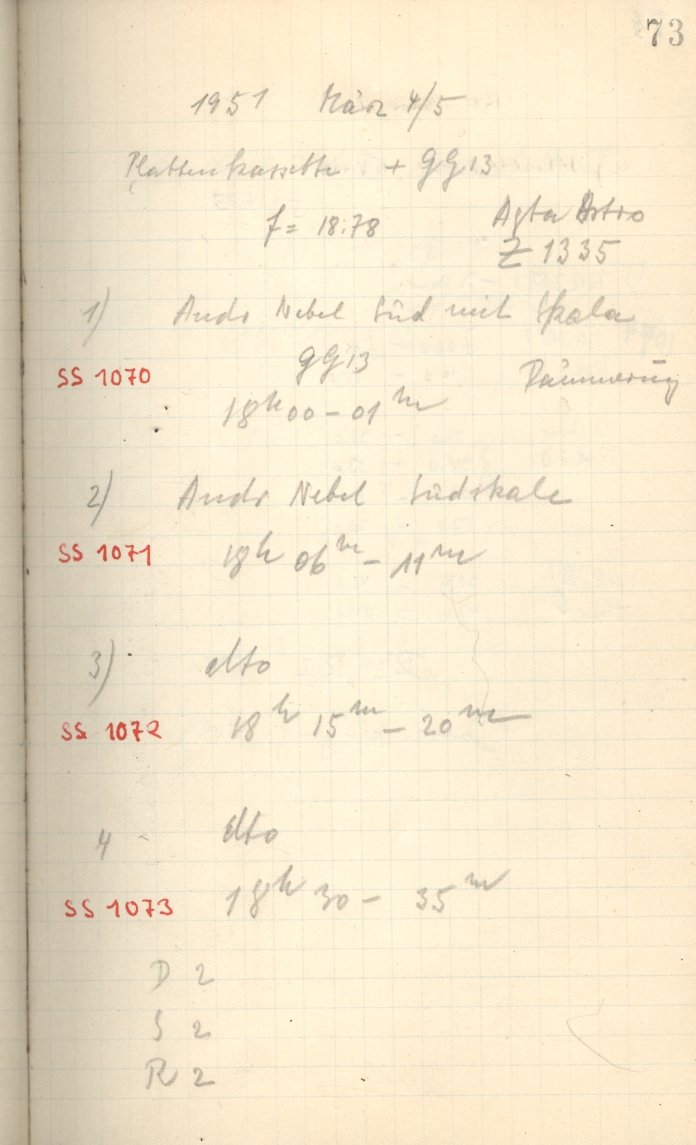 73
1951 März 4/5
Plattenkassette + GG13
f = 18.78 Agfa Astro
Z 1335
1) Andr Nebel Süd mit Skala
GG13
SS 1070 Dämmerung
18h 00 - 01m
2) Andr Nebel Südskale
SS 1071 18h 06m - 11m
3) dto
SS 1072 18h 15m - 20m
4 dto
SS 1073 18h 30 - 35m
D 2
S 2
R 2